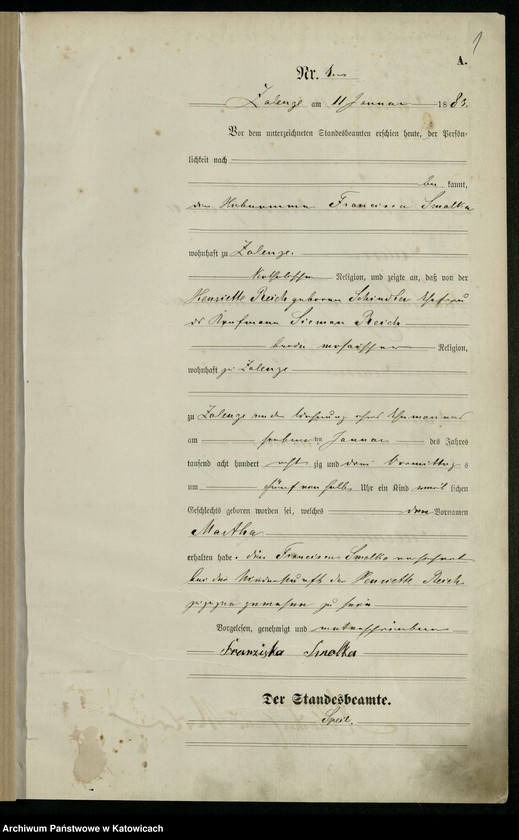 1
A.
Nr. 1.
Zalenze am 11 Januar 1883.
Vor dem unterzeichneten Standesbeamten erschien heute, der Persön-
lichkeit nach
be kannt,
die Hebamme Francisca Smolka
wohnhaft zu Zalenze.
katholischer Religion, und zeigte an, daß von der
Henriette Reich geborenen Schindler Ehefrau
des Kaufmann Simon Reich
beide mosaischer Religion,
wohnhaft zu Zalenze
zu Zalenze in der Wohnung ihres Ehemannes
am sieben ten Januar des Jahres
tausend acht hundert acht zig und drei Vormittag s
um fünf ein halb Uhr ein Kind weib lichen
Geschlechts geboren worden sei, welches den Vornamen
Martha
erhalten habe. Die Francisca Smolka
bei der Niederkunft der Henriette Reich
zugegen gewesen zu sein
Vorgelesen, genehmigt und unterschrieben
Franziska Smolka
Der Standesbeamte.
Archiwum Państwowe w Katowicach